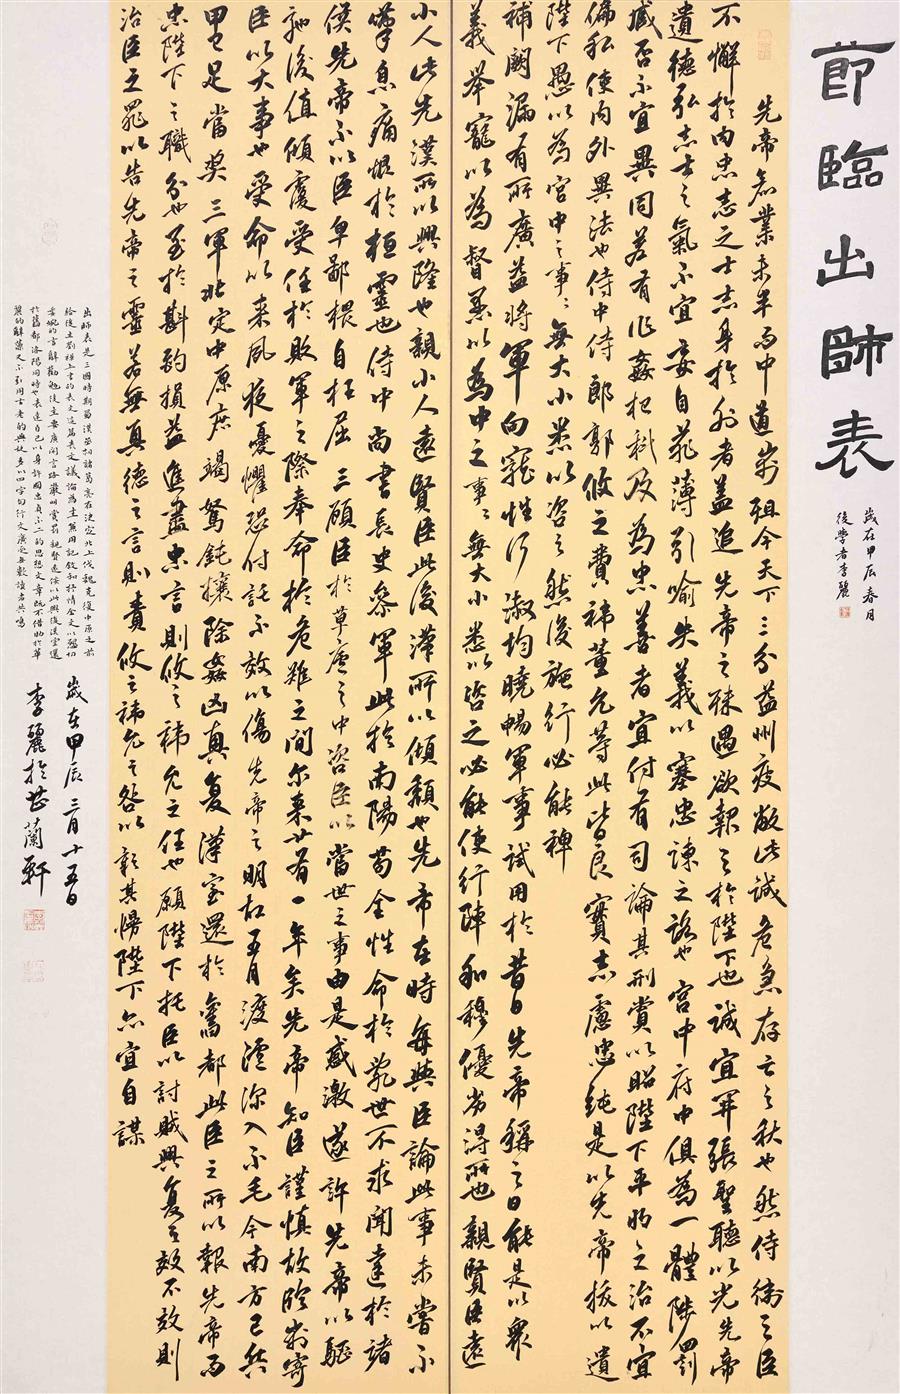 節臨出師表
歲在甲辰春月
後學者李麗
先帝創業未半而中道崩殂今天下三分益州疲敝此誠危急存亡之秋也然侍衛之臣
不懈於內忠志之士忘身於外者蓋追先帝之殊遇欲報之於陛下也誠宜開張聖聽以光先帝
遺德弘志士之氣不宜妄自菲薄引喻失義以塞忠諫之路也宮中府中俱為一體陟罰
臧否不宜異同若有作姦犯科及為忠善者宜付有司論其刑賞以昭陛下平明之治不宜
偏私使內外異法也侍中侍郎郭攸之費禕董允等此皆良實志慮忠純是以先帝拔以遺
陛下愚以為宮中之事事無大小悉以咨之然後施行必能裨
補闕漏有所廣益將軍向寵性行淑均曉暢軍事試用於昔日先帝稱之曰能是以眾
義舉寵以為督愚以為中之事事無大小悉以咨之必能使行陣和穆優劣得所也親賢臣遠
小人此先漢所以興隆也親小人遠賢臣此後漢所以傾頹也先帝在時每與臣論此事未嘗不
嘆息痛恨於桓靈也侍中尚書長史參軍此於南陽苟全性命於亂世不求聞達於諸
侯先帝不以臣卑鄙猥自枉屈三顧臣於草廬之中咨臣以當世之事由是感激遂許先帝以驅
馳後值傾覆受任於敗軍之際奉命於危難之間爾來廿有一年矣先帝知臣謹慎故臨崩寄
臣以大事也受命以來夙夜憂懼恐付託不效以傷先帝之明故五月渡瀘深入不毛今南方已然
甲已足當獎三軍北定中原庶竭駑鈍攘除姦凶興復漢室還於舊都此臣之所以報先帝而
忠陛下之職分也至於斟酌損益進盡忠言則攸之禕允之任也願陛下托臣以討賊興復之效不效則
治臣之罪以告先帝之靈若無興德之言則責攸之禕允之咎以彰其慢陛下亦宜自謀
出師表是三國時期蜀漢丞相諸葛亮在決定北上伐魏克復中原之前
給後主劉禪上書的表文這篇表文議論為主兼用記敘和抒情全文以懇切
委婉的言辭勸勉後主要廣開言路嚴明賞罰親賢遠佞以此興復漢室還
於舊都洛陽同時也表達自己以身許國忠貞不二的思想文章既不借助於華
麗的辭藻又不引用古老的典故多以四字句行文廣受無數讀者共鳴
歲在甲辰三月十五日
李麗於芷蘭軒